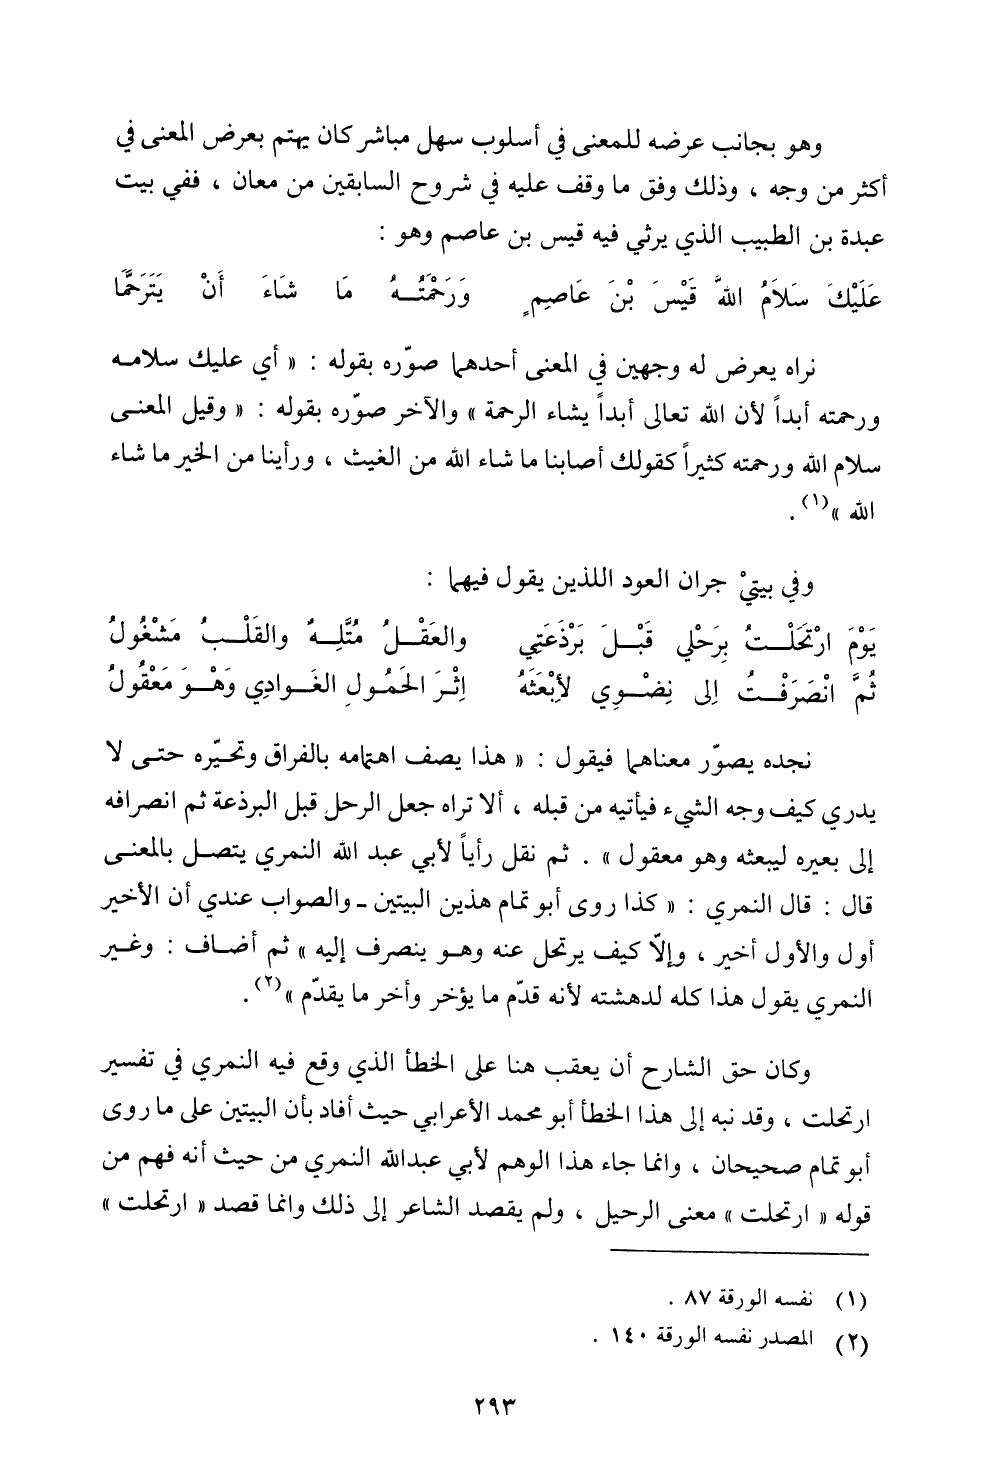 وهو بجانب عرضه للمعنى في أسلوب سهل مباشر كان يهتم بعرض المعنى في
أكثر من وجه ، وذلك وفق ما وقف عليه في شروح السابقين من معان ، ففي بيت
عبدة بن الطبيب الذي يرثي فيه قيس بن عاصم وهو :
عَلَيْكَ سَلاَمُ اللهَّ قَيْسَ بْنَ عَاصِمٍ وَرَحْمَتُـــهُ مَا شَاءَ أَنْ يَتَرَحَّمَا
نراه يعرض له وجهين في المعنى أحدهما صوّره بقوله : « أي عليك سلامـه
ورحمته أبداً لأن الله تعالى أبداً يشاء الرحمة » والآخر صوّره بقوله : « وقيل المعنـى
سلام الله ورحمته كثيراً كقولك أصابنا ما شاء الله من الغيث ، ورأينا من الخير ما شاء
الله »(١) .
وفي بيتيْ جران العود اللذين يقول فيهما :
يَوْمَ ارْتَحَلْـــتُ بِرَحْلي قَبْــلَ بَرْذَعَتِي والعَقْــلُ مُتَّلِــهٌ والقَلْــبُ مَشْغُولُ
ثُمَّ انْصَرَفْــتُ إلى نِضْــوِي لأِبْعَثَهُ إثْــرَ الحَمُــولِ الغَــوادِي وَهْــوَ مَعْقُولُ
نجده يصوّر معناهما فيقول : « هذا يصف اهتمامه بالفراق وتحيّره حتـى لا
يدري كيف وجه الشيء فيأتيه من قبله ، ألا تراه جعل الرحل قبل البرذعة ثم انصرافه
إلى بعيره ليبعثه وهو معقول » . ثم نقل رأياً لأبي عبد الله النمري يتصـل بالمعنـى
قال : قال النمري : « كذا روى أبو تمام هذين البيتين ـ والصواب عندي أن الأخير
أول والأول أخير ، وإلاّ كيف يرتحل عنه وهـو ينصرف إليه » ثم أضـاف : وغـير
النمري يقول هذا كله لدهشته لأنه قدّم ما يؤخر وأخر ما يقدّم »(٢) .
وكان حق الشارح أن يعقب هنا على الخطأ الذي وقع فيه النمري في تفسير
ارتحلت ، وقد نبه إلى هذا الخطأ أبو محمد الأعرابي حيث أفاد بأن البيتين على ما روى
أبو تمام صحيحان ، وانما جاء هذا الوهم لأبي عبدالله النمري من حيث أنه فهم من
قوله « ارتحلت » معنى الرحيل ، ولم يقصد الشاعر إلى ذلك وانما قصد « ارتحلت »
(١) نفسه الورقة ٨٧ .
(٢) المصدر نفسه الورقة ١٤٠ .
٢٩٣